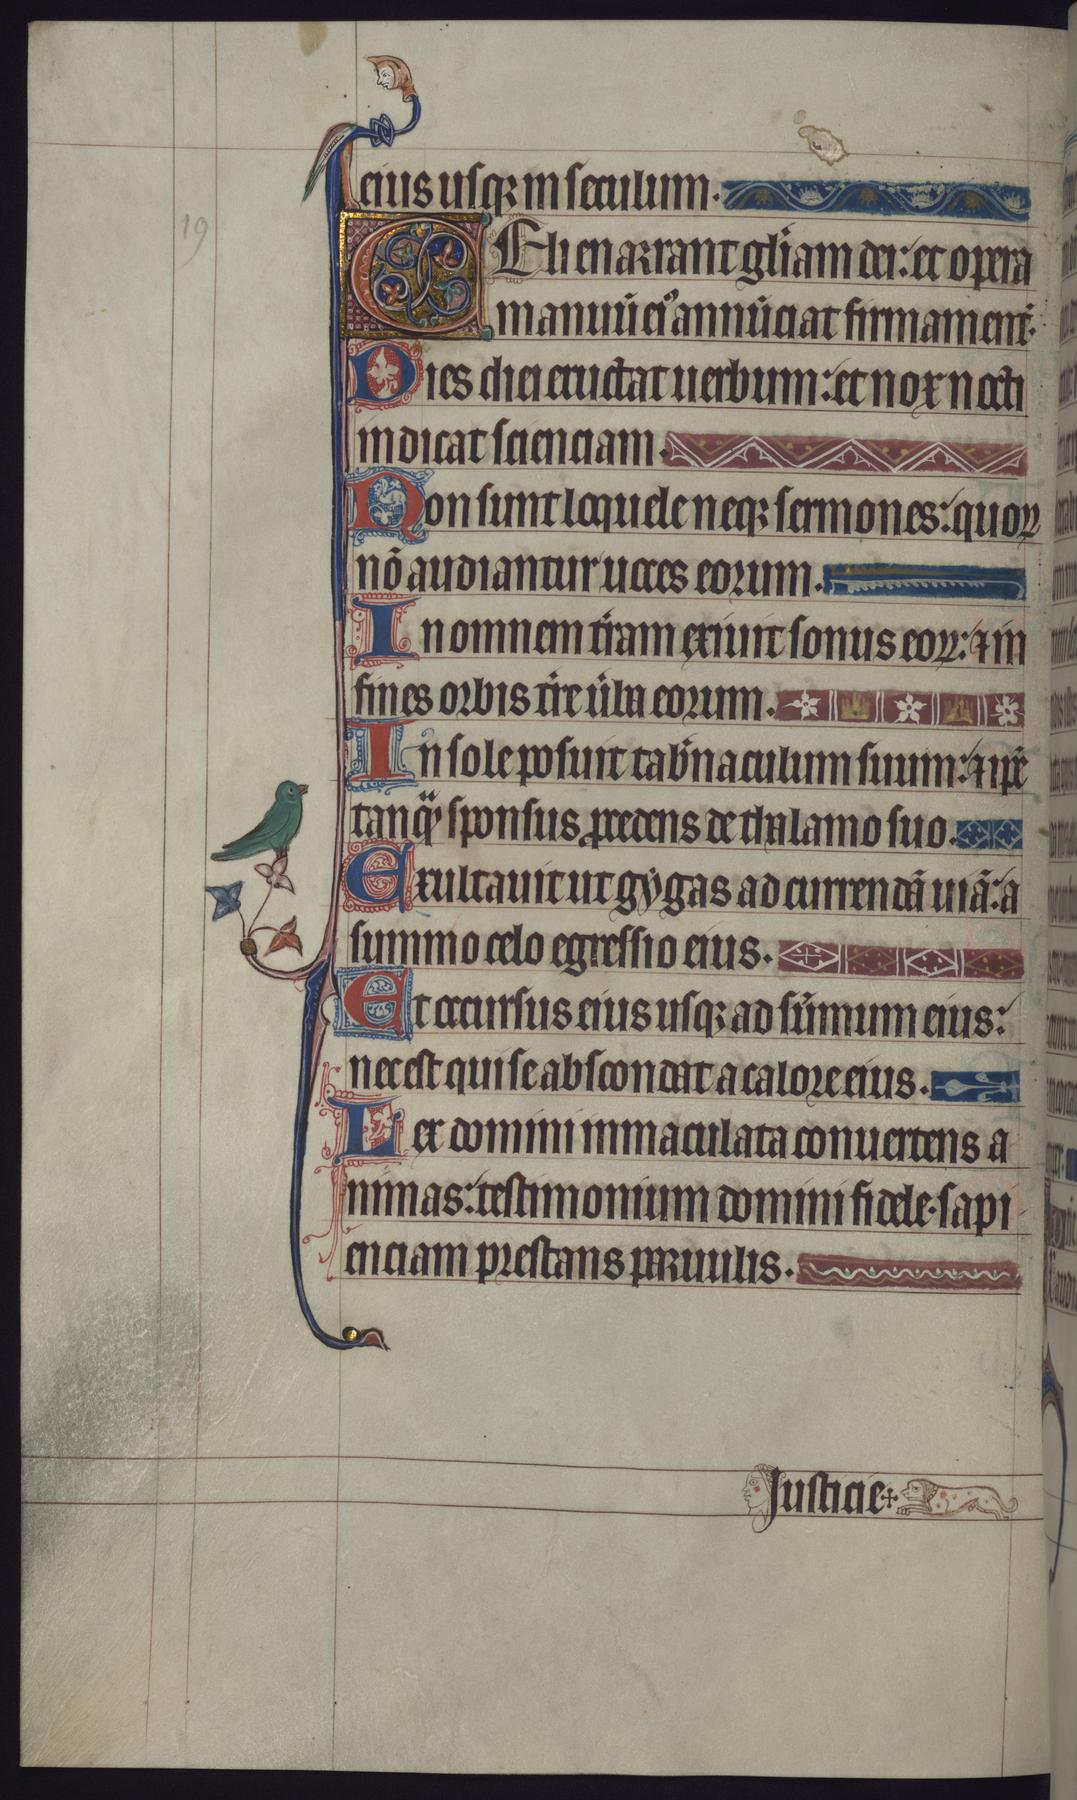 eius usqꝫ in seculum.
19
Celi enarrant gl'iam dei: et opera
manuū ei᾽ annūciat firmament'.
Dies diei eructat uerbum: et nox nocti
indicat scienciam.
Non sunt loquele neqꝫ sermones: quoꝝ
nō audiantur uoces eorum.
In omnem t'ram exiuit sonus eoꝝ: ⁊ in
fines orbis t're u'ba eorum.
In sole posuit tab'naculum suum: ⁊ ip̄e
tanqͣꝫ sponsus ꝓcedens de thalamo suo.
Exultauit ut gẏgas ad currendā uiā: a
summo celo egressio eius.
Et occursus eius usqꝫ ad sūmum eius:
nec est qui se abscondat a calore eius.
Lex domini inmaculata conuertens a
nimas: testimonium domini fidele. sapi
enciam prestans paruulis.
Justicie